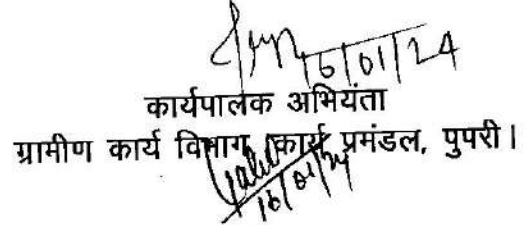 16/01/24
कार्यपालक अभियंता
ग्रामीण कार्य विभाग, कार्य प्रमंडल, पुपरी।
16/01/24